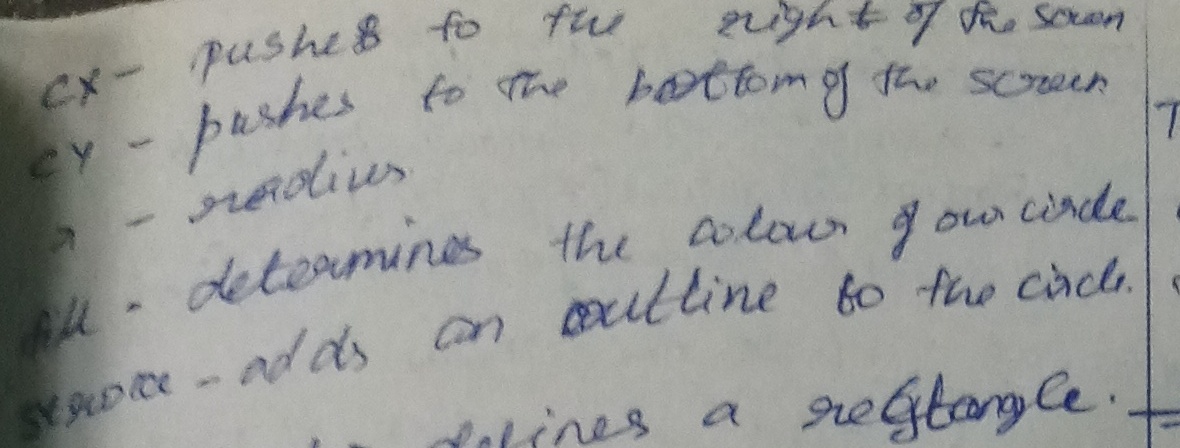 cx - pushes to the right of the screen
cy - pushes to the bottom of the screen
r - radius
fill - determines the colour of our circle
stroke - adds an outline to the circle.
defines a rectangle.